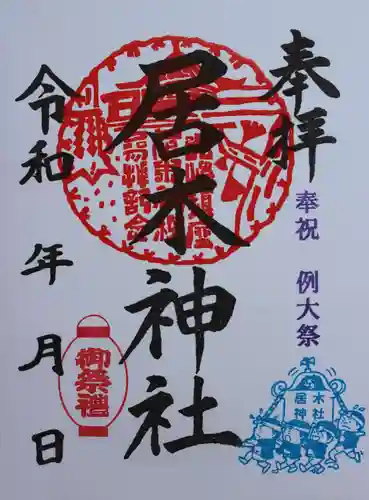 奉拝
奉祝 例大祭
居木神社
令和 年 月 日
御祭禮
居木
神社